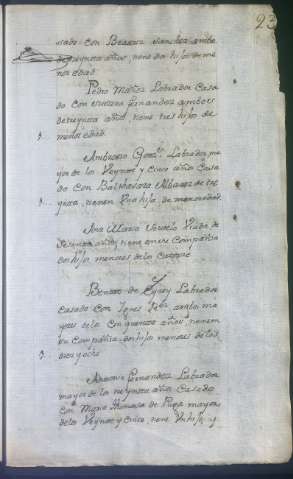 23
sado con Beatriz Sanchez ambos
de treynta años, tiene dos hijos de me
nor edad.
Pedro Muñoz Labrador Casa
do con fernandez ambos
de treynta años, tiene tres hijos de
menor edad.
Ambrosio Gonz.s Labrador ma
yor de los Veynte y Cinco años Casa
do con Balthasara Albarez de tre
ynta, tienen Vn hijo de menor edad
Ana Maria Viuda de
Sesenta años, tiene en su Compañia
dos hijos menores de los Catorce
Benito de Labrador
Casado con Ignes ambos ma
yores de los Cinquenta años, tienen
en Compañia dos hijos menores de los
diez y ocho
Antonio fernandez Labrador
mayor de los treynta años Casado
Con Maria de Puga mayor
de los Veynte y Cinco tiene Vn hijo y